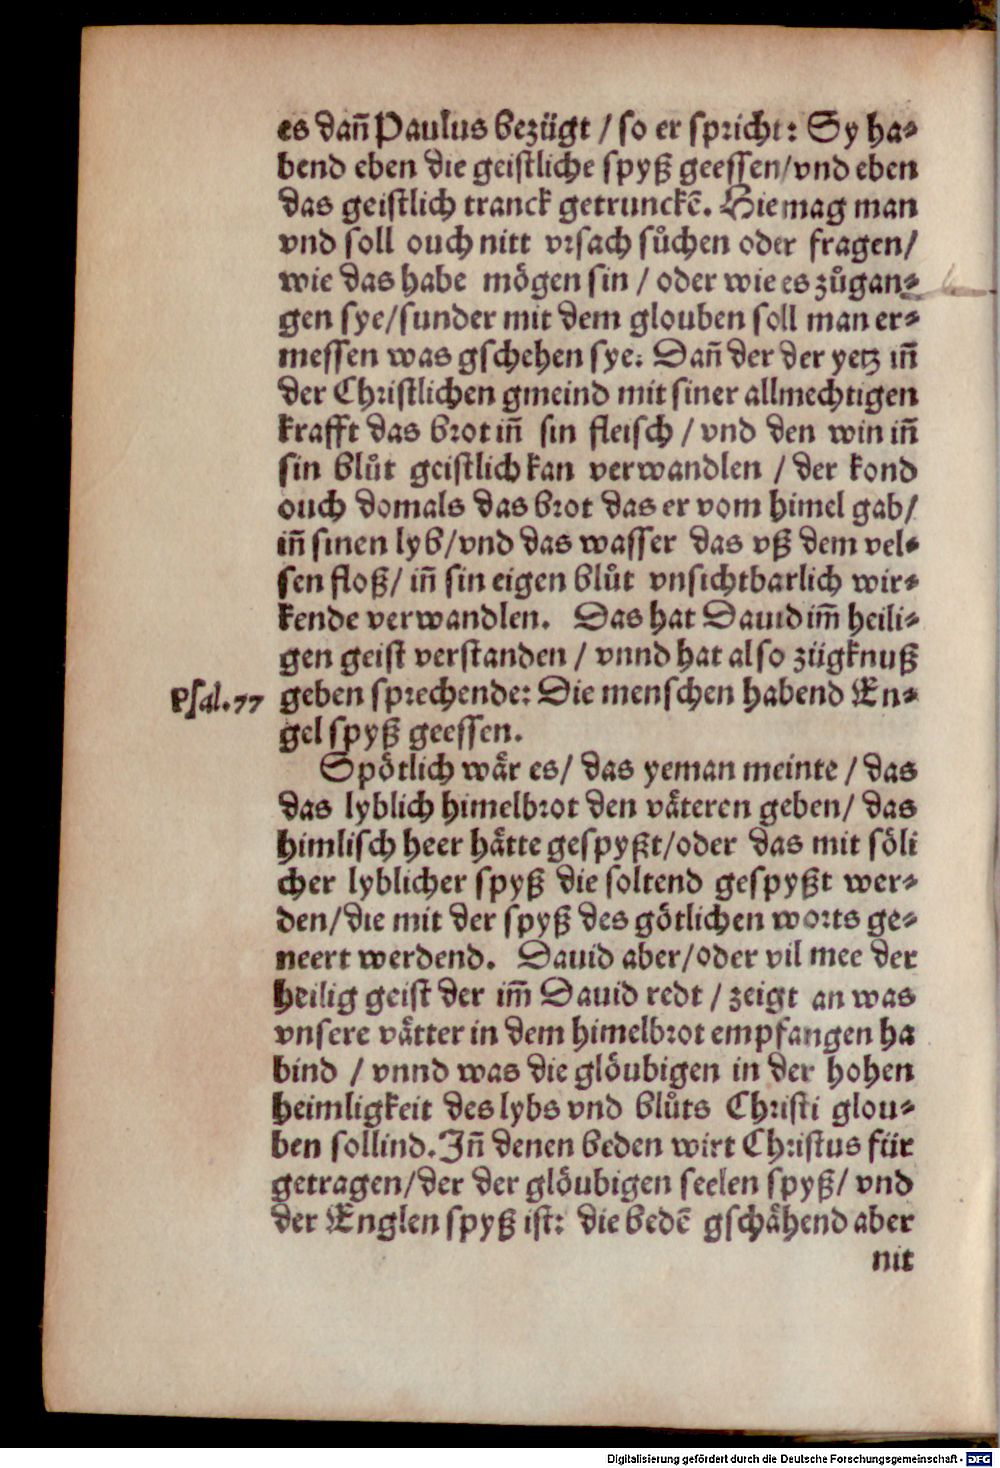 es dañ Paulus bezügt / so er spricht: Sy ha-
bend eben die geistliche spyß geessen/vnd eben
das geistlich tranck getrunckē. Hie mag man
vnd soll ouch nitt vrsach sůchen oder fragen/
wie das habe mögen sin / oder wie es zůgan-
gen sye/sunder mit dem glouben soll man er-
messen was gschehen sye. Dañ der der yetz iñ
der Christlichen gmeind mit siner allmechtigen
krafft das brot iñ sin fleisch / vnd den win iñ
sin blůt geistlich kan verwandlen / der kond
ouch domals das brot das er vom himel gab/
iñ sinen lyb/vnd das wasser das vß dem vel-
sen floß/ iñ sin eigen blůt vnsichtbarlich wir-
kende verwandlen. Das hat Dauid im̄ heili-
gen geist verstanden / vnnd hat also zügknuß
Psal.77 geben sprechende: Die menschen habend En-
gel spyß geessen.
Spötlich wär es/ das yeman meinte / das
das lyblich himelbrot den väteren geben/ das
himlisch heer hätte gespyßt/oder das mit söli
cher lyblicher spyß die soltend gespyßt wer-
den/die mit der spyß des götlichen worts ge-
neert werdend. Dauid aber/oder vil mee der
heilig geist der im̄ Dauid redt / zeigt an was
vnsere vätter in dem himelbrot empfangen ha
bind / vnnd was die glöubigen in der hohen
heimligkeit des lybs vnd blůts Christi glou-
ben sollind. Iñ denen beden wirt Christus für
getragen/der der glöubigen seelen spyß/ vnd
der Englen spyß ist: die bedē gschähend aber
nit
Digitalisierung gefördert durch die Deutsche Forschungsgemeinschaft - DFG